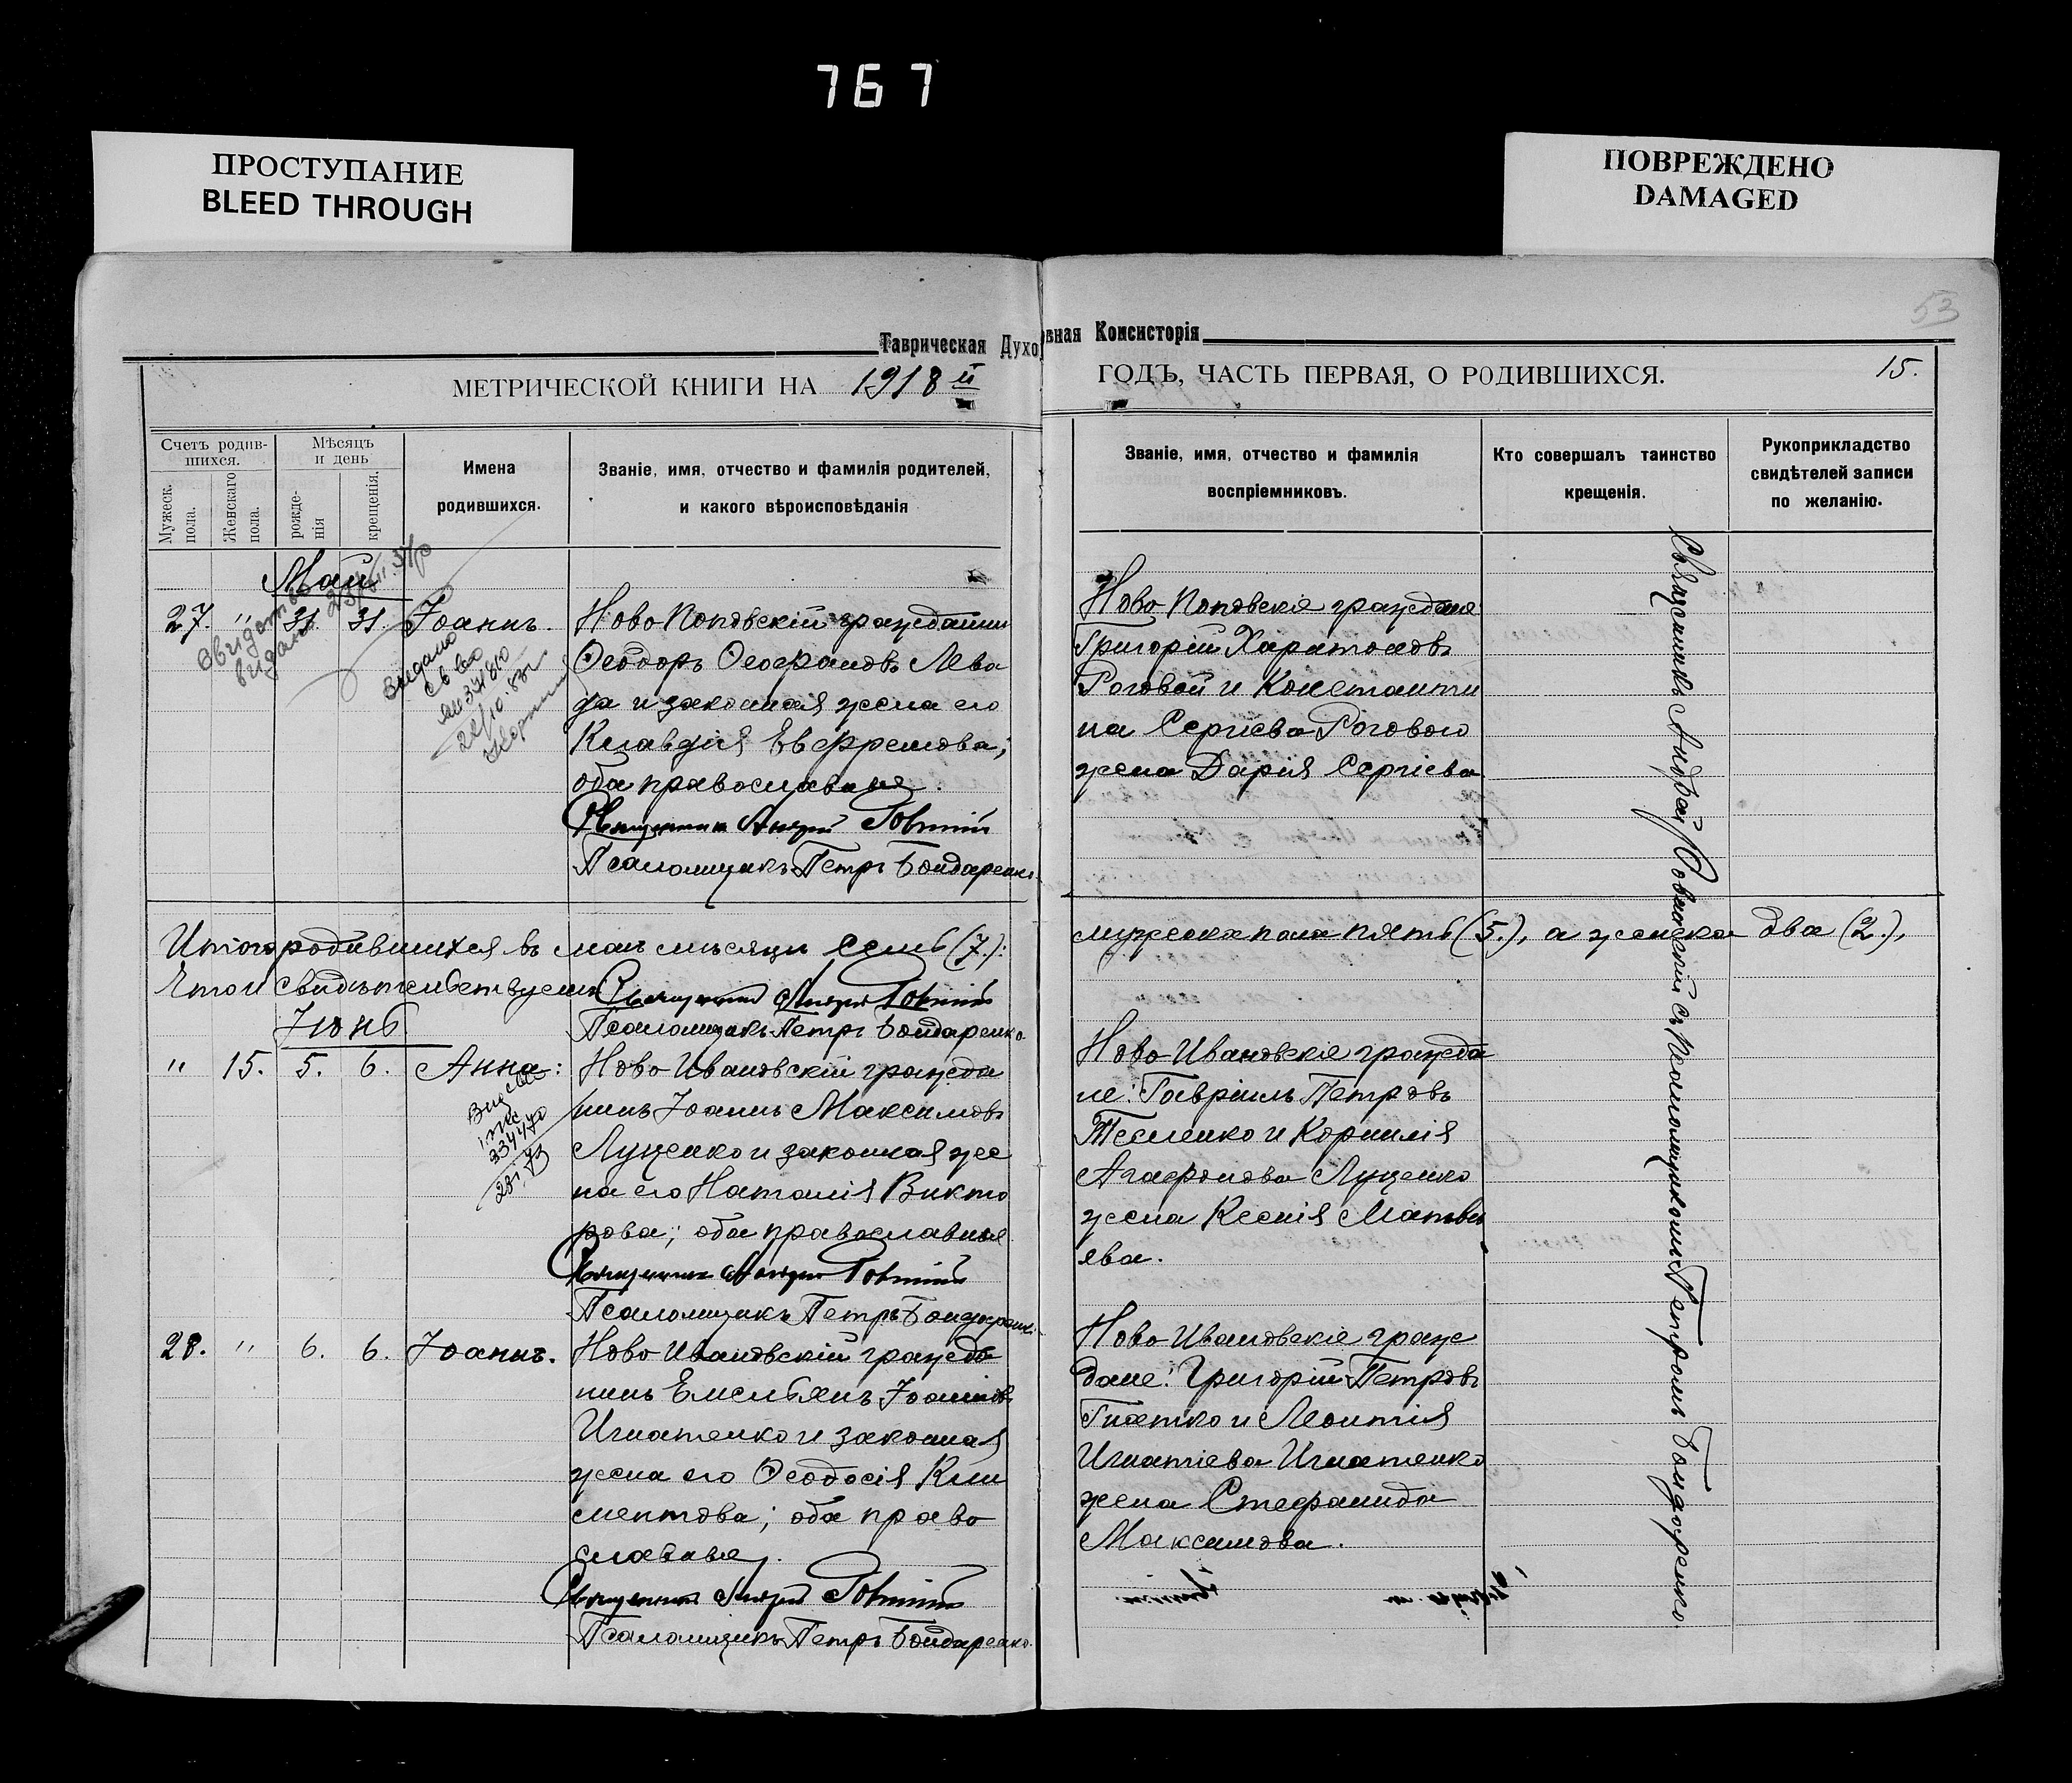 767
ПРОСТУПАНИЕ
BLEED THROUGH
ПОВРЕЖДЕНО
DAMAGED
53
Таврическая Духовная Консисторія
МЕТРИЧЕСКОЙ КНИГИ НА 1918 й
ГОДЪ, ЧАСТЬ ПЕРВАЯ, О РОДИВШИХСЯ.
15.
Счетъ родив-
шихся.
Мужеск.
пола.
Женскаго
пола.
Мѣсяцъ
и день
рожде-
нія
крещенія.
Имена
родившихся.
Званіе, имя, отчество и фамилія родителей,
и какого вѣроисповѣданія
Званіе, имя, отчество и фамилія
воспріемниковъ.
Кто совершалъ таинство
крещенія.
Рукоприкладство
свидѣтелей записи
по желанію.
Май
27. " 31. 31. Іоаннъ.
Ново Поповскій гражданинъ
Ѳеодоръ Ѳеофановъ Лева
да и законная жена его
Клавдія Евфремова;
оба православные.
Священникъ Андрей
Псаломщикъ Петръ Бондаренко.
Ново Поповскіе граждане
Григорій Харитоновъ
Роговой и Константи
на Сергіева Рогового
жена Дарія Сергіева
Итого родившихся въ маѣ мѣсяцѣ семь (7.):
мужеска пола пять (5.), а женска два (2.),
Что и свидѣтельствуемъ
Священникъ Андрей
Псаломщикъ Петръ Бондаренко.
Іюнь
" 15. 5. 6. Анна:
Ново Ивановскій гражда
нинъ Іоаннъ Максимовъ
Луценко и законная же
на его Наталія Викто
рова; оба православные
Священникъ Андрей
Псаломщикъ Петръ Бондаренко.
Ново Ивановскіе гражда
не: Гавріилъ Петровъ
Тесленко и Корнилія
Агафонова Луценко
жена Ксенія Матвѣ
ева.
28. " 6. 6. Іоаннъ.
Ново Ивановскій гражда
нинъ Емельянъ Іоанновъ
Игнатенко и законная
жена его Ѳеодосія Кли
ментова; оба право
славные.
Священникъ Андрей
Псаломщикъ Петръ Бондаренко.
Ново Ивановскіе граж
дане: Григорій Петровъ
Гнатко и Леонтія
Игнатіева Игнатенко
жена Стефанида
Максимова.
Священникъ Андрей съ псаломщикомъ Петромъ Бондаренко.